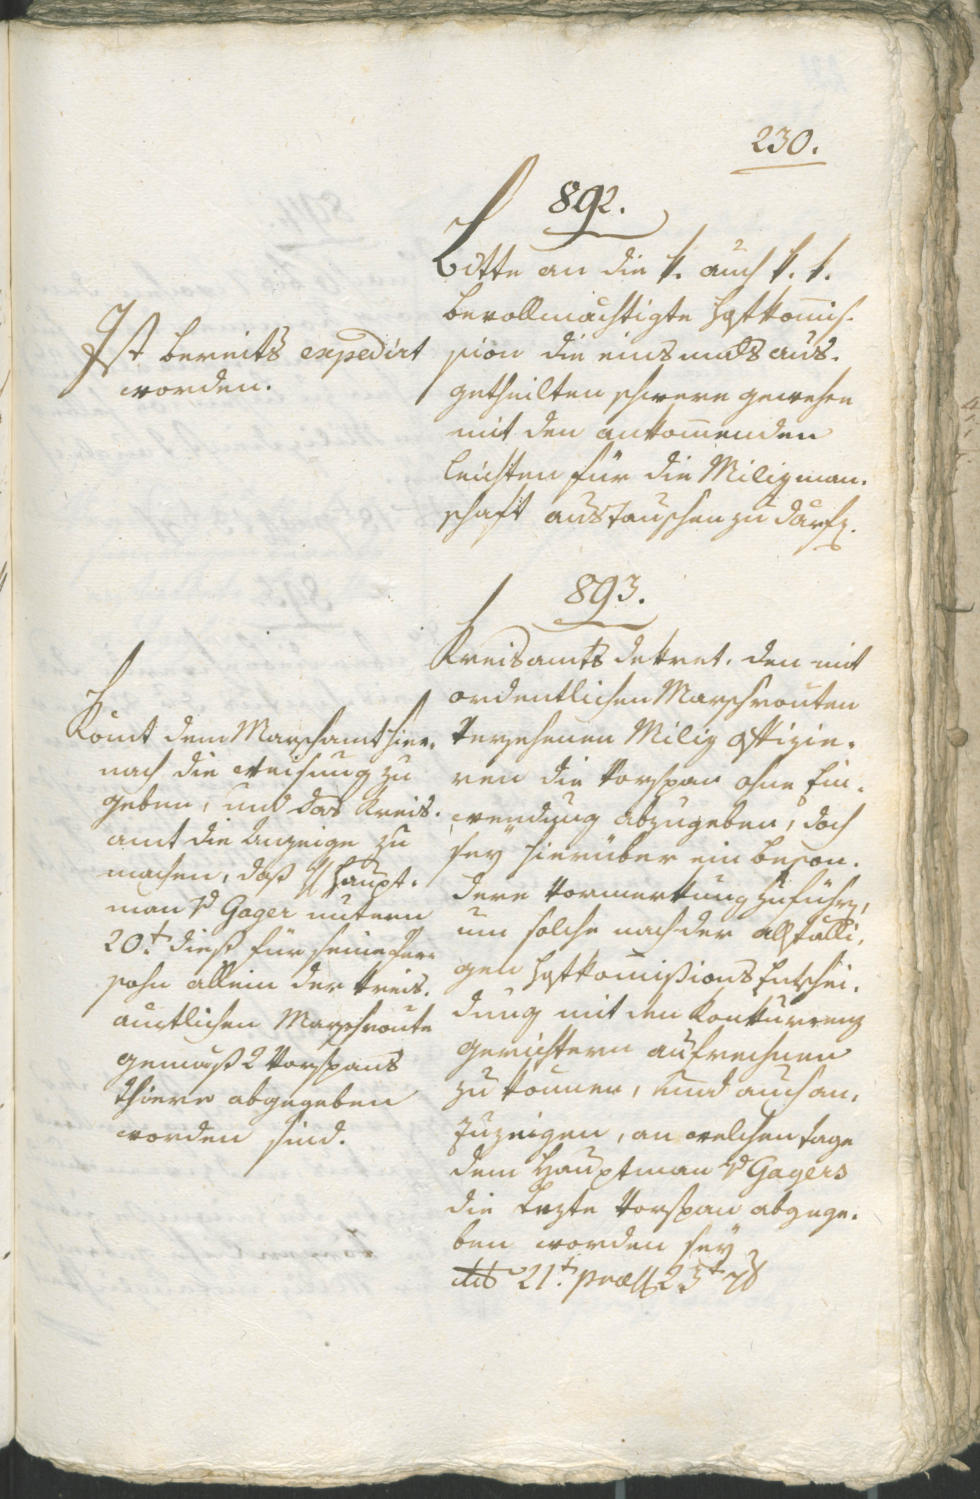 230.
892.
Bitte an die k. auch k. k.
bevollmächtigte Hofkom̅is-
sion die einsmals aus-
getheilten schwere gewehre
mit den ankom̅enden
leichten für die Milizman-
schaft austauschen zu därfen.
Ist bereits expedirt
worden.
893.
Kreisamts dekret. den mit
ordentlichen Marschrouten
versehenen Miliz Offizie-
ren die Vorspan ohne Ein-
wendung abzugeben, doch
seÿ hierüber ein beson-
dere Vormerkung zu führen,
um solche nach der allfälli-
gen Hofkom̅ißions Entschei-
dung mit den Konkurrenz
gerichtern aufrechnen
zu können, und auch an-
zuzeigen, an welchem tage
dem Hauptman v Gagers
die lezte Vorspan abgege-
ben worden seÿ
dto 21t. praes 23t
Kom̅t dem Marschamt hier-
nach die weisung zu
geben, und das Kreis-
amt die Anzeige zu
machen, daß H Haupt-
man v Gager untern
20t. dieß für seine Per-
sohn allein der kreis-
amtlichen Marschroute
gemäß 2 Vorspans
thiere abgegeben
worden sind.